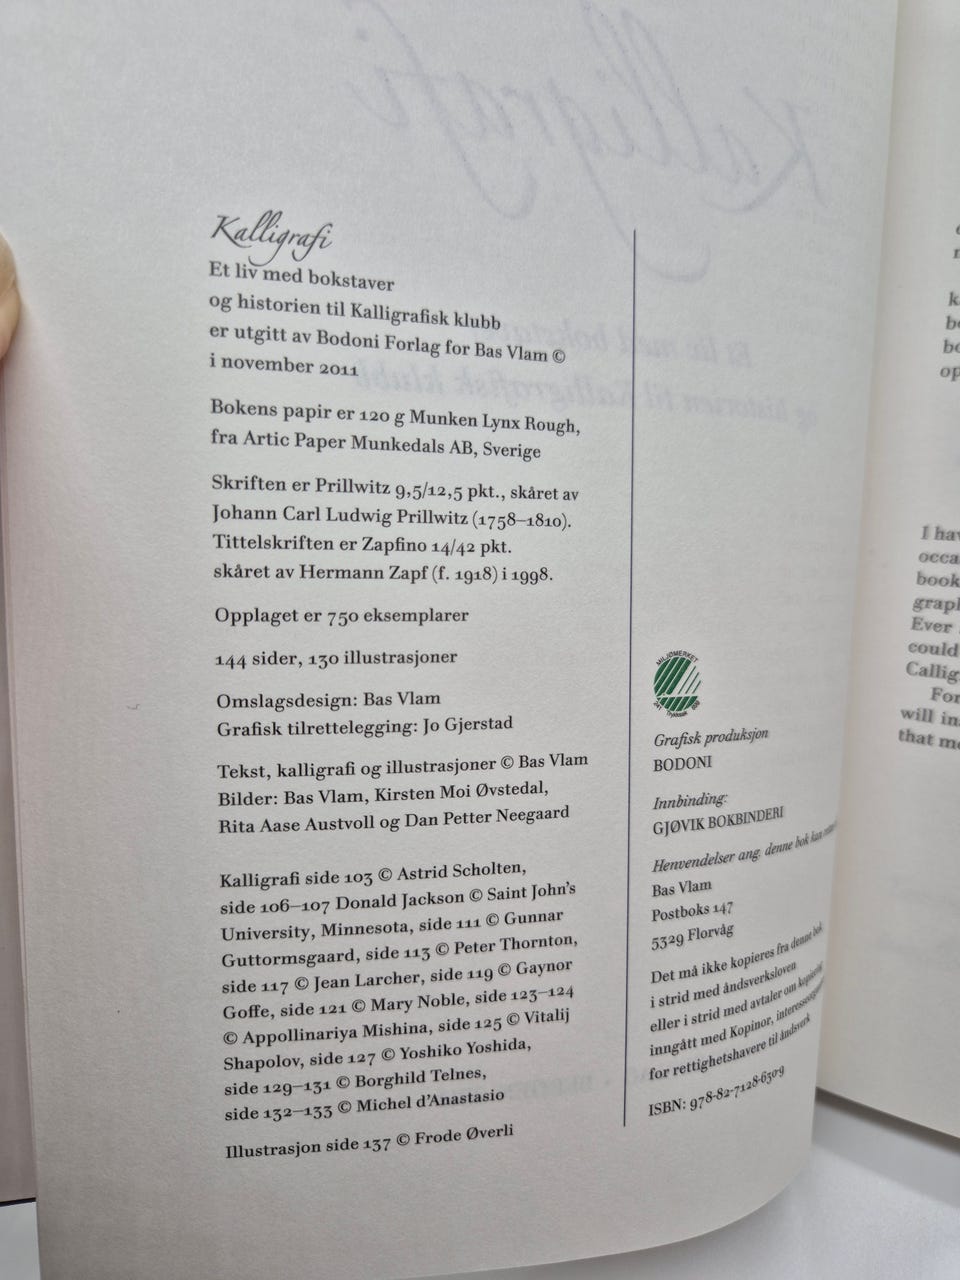 Kalligrafi
Et liv med bokstaver
og historien til Kalligrafisk klubb
er utgitt av Bodoni Forlag for Bas Vlam ©
i november 2011
Bokens papir er 120 g Munken Lynx Rough,
fra Artic Paper Munkedals AB, Sverige
Skriften er Prillwitz 9,5/12,5 pkt., skåret av
Johann Carl Ludwig Prillwitz (1758–1810).
Tittelskriften er Zapfino 14/42 pkt.
skåret av Hermann Zapf (f. 1918) i 1998.
Opplaget er 750 eksemplarer
144 sider, 130 illustrasjoner
Omslagsdesign: Bas Vlam
Grafisk tilrettelegging: Jo Gjerstad
Tekst, kalligrafi og illustrasjoner © Bas Vlam
Bilder: Bas Vlam, Kirsten Moi Øvstedal,
Rita Aase Austvoll og Dan Petter Neegaard
Kalligrafi side 103 © Astrid Scholten,
side 106–107 Donald Jackson © Saint John's
University, Minnesota, side 111 © Gunnar
Guttormsgaard, side 113 © Peter Thornton,
side 117 © Jean Larcher, side 119 © Gaynor
Goffe, side 121 © Mary Noble, side 123–124
© Appollinariya Mishina, side 125 © Vitalij
Shapolov, side 127 © Yoshiko Yoshida,
side 129–131 © Borghild Telnes,
side 132–133 © Michel d'Anastasio
Illustrasjon side 137 © Frode Øverli
MILJØMERKET
241 Trykksak
Grafisk produksjon
BODONI
Innbinding:
GJØVIK BOKBINDERI
Henvendelser ang. denne bok kan
Bas Vlam
Postboks 147
5329 Florvåg
Det må ikke kopieres fra denne bok
i strid med åndsverksloven
eller i strid med avtaler om kopiering
inngått med Kopinor,
for rettighetshavere til åndsverk
ISBN: 978-82-7128-630-9
I
occa
book
Ever
could
Callig
For
will in
that